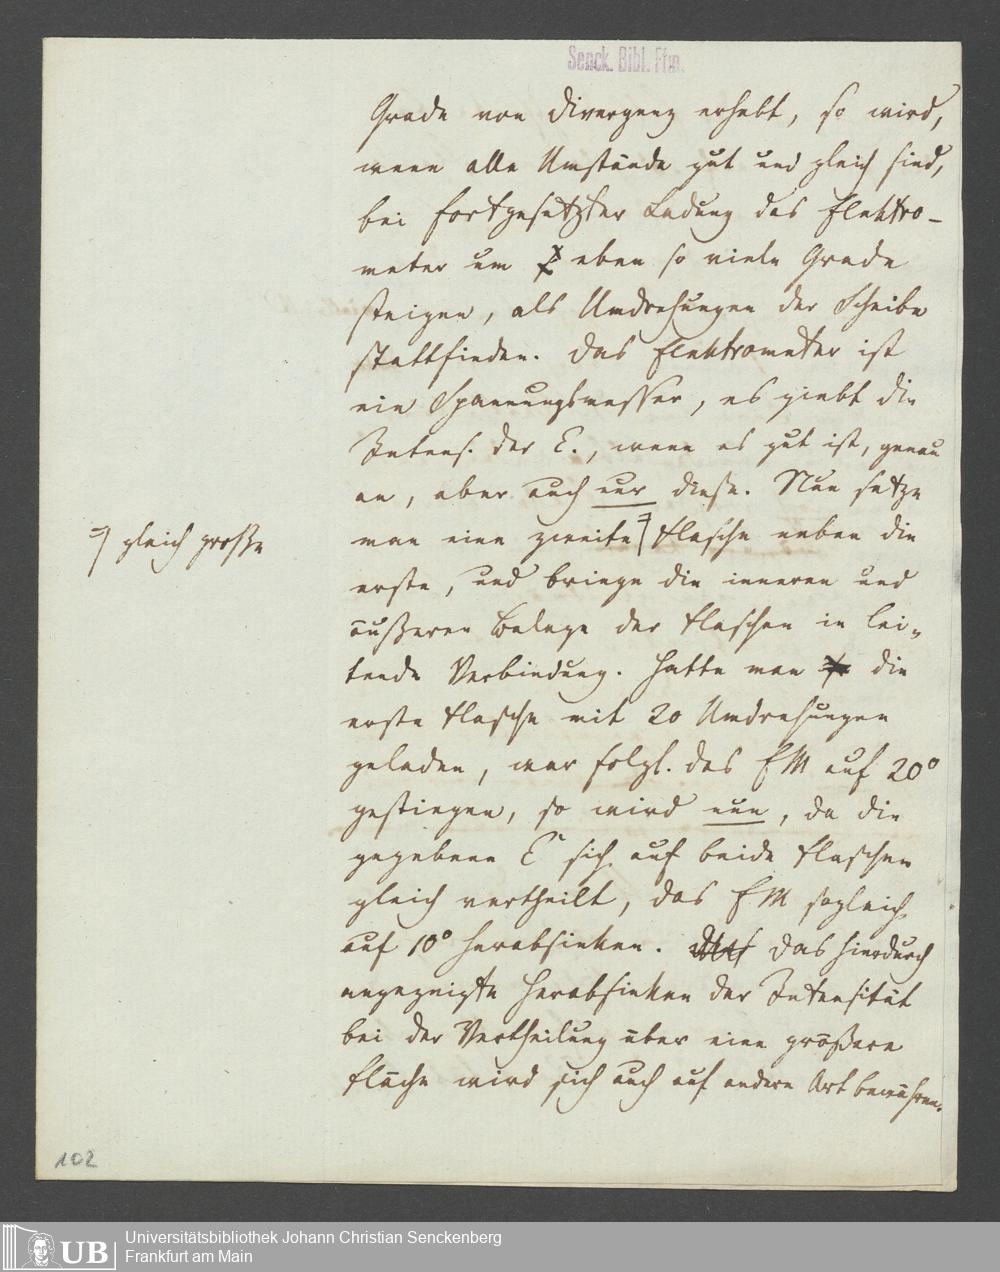 Senck. Bibl. Ffm.
Grade von Divergenz erhebt, so wird,
wenn alle Umstände gut und gleich sind,
bei fortgesetzter Ladung das Elektro-
meter um eben so viele Grade
steigen, als Umdrehungen der Scheibe
stattfinden. Das Elektrometer ist
ein Spannungsmesser, es giebt die
Intens. der E., wenn es gut ist, genau
an, aber auch nur diese. Nun setze
man eine zweite Flasche neben die
gleich große
erste, und bringe die inneren und
äußeren Belege der Flaschen in lei-
tende Verbindung. Hatte man die
erste Flasche mit 20 Umdrehungen
geladen, war folgl. das EM auf 20°
gestiegen, so wird nun, da die
gegebene E sich auf beide Flaschen
gleich vertheilt, das EM sogleich
auf 10° herabsinken. Das hierdurch
angezeigte Herabsinken der Intensität
bei der Vertheilung über eine größere
Fläche wird sich auch auf andere Art bewähren.
102
UB
Universitätsbibliothek Johann Christian Senckenberg
Frankfurt am Main